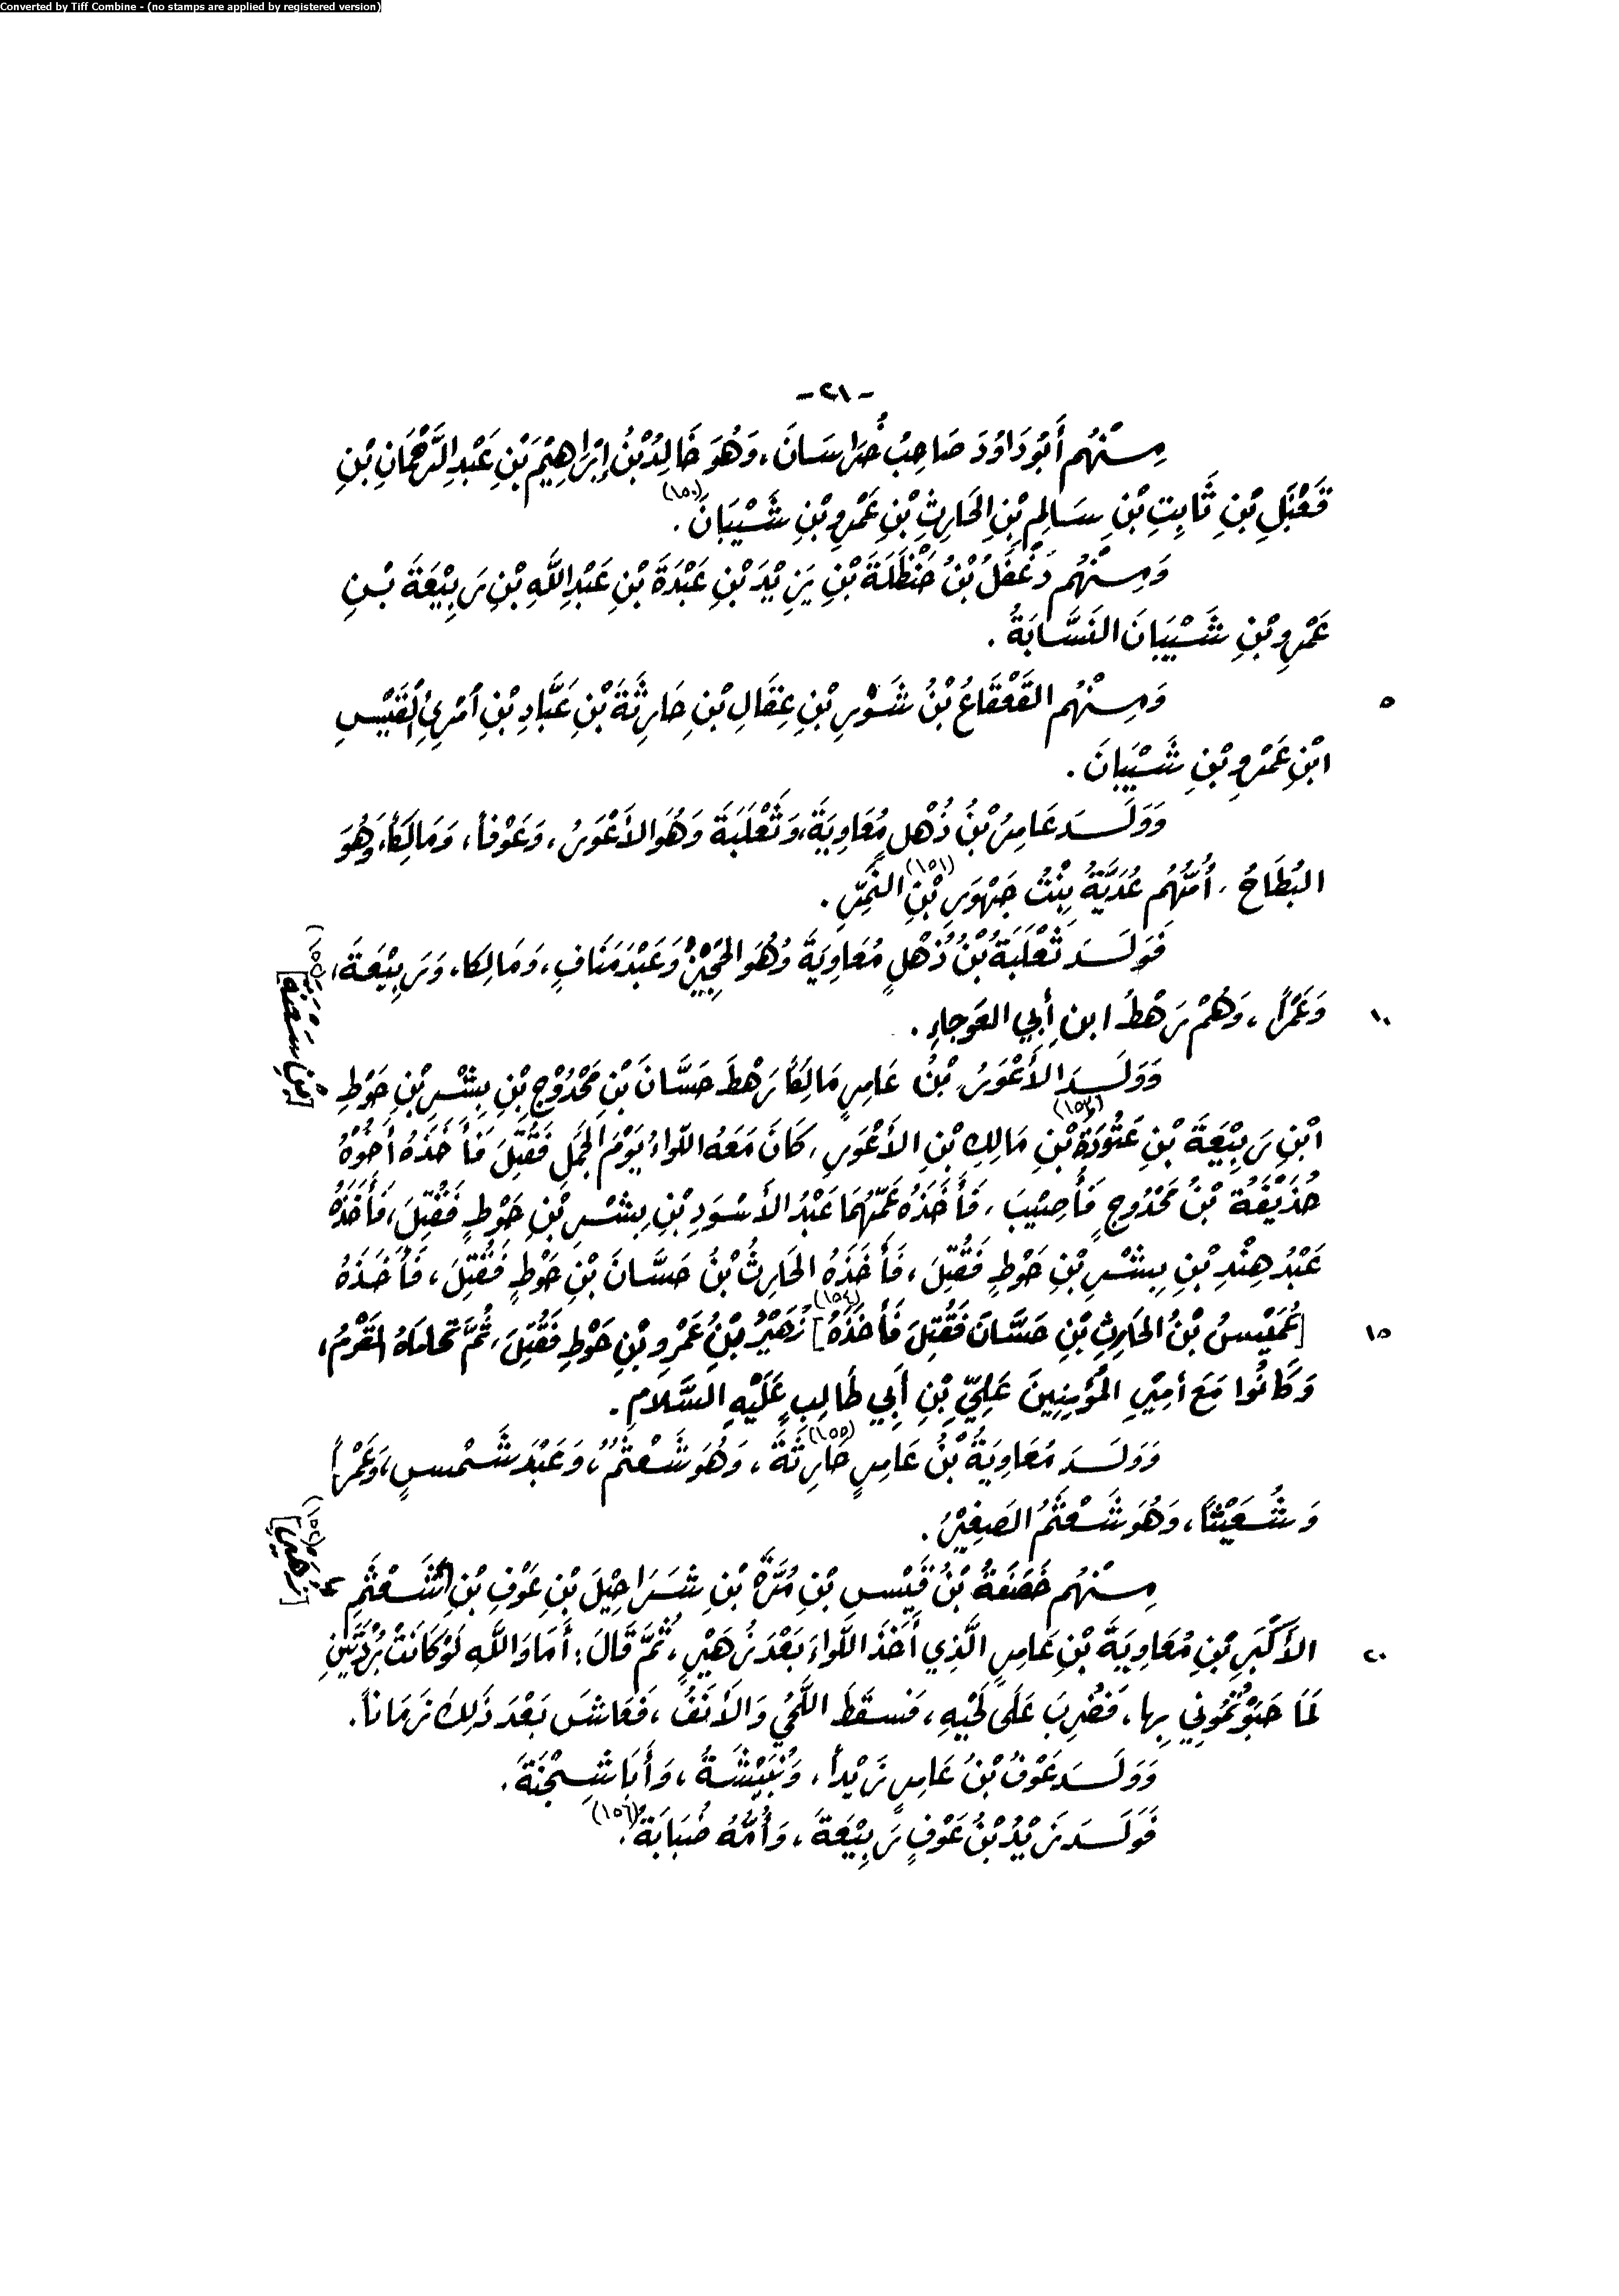 Converted by Tiff Combine - (no stamps are applied by registered version)
-٢١-
مِنْهُم أَبُو دَاوُدَ صَاحِبُ خُرَاسَانَ، وَهُوَ خَالِدُ بْنُ إبْرَاهِيْمَ بْنِ عَبْدِ الرَّحْمَانِ بْنِ
قَعْبَلِ بْنِ ثَابِتِ بْنِ سَالِمِ بْنِ الحَارِثِ بْنِ عَمْرِو بْنِ شَيْبَانَ (١٥٠).
وَمِنْهُم دَغْفَلُ بْنُ حَنْظَلَةَ بْنِ يَزِيْدَ بْنِ عَبْدَةَ بْنِ عَبْدِ اللَّهِ بْنِ رَبِيْعَةَ بْنِ
عَمْرِو بْنِ شَيْبَانَ النَّسَّابَةُ.
وَمِنْهُم القَعْقَاعُ بْنُ شَوْرِ بْنِ عِقَالِ بْنِ حَارِثَةَ بْنِ عَبَّادِ بْنِ امْرِئِ القَيْسِ
٥
ابْنِ عَمْرِو بْنِ شَيْبَانَ.
وَوَلَدَ عَامِرُ بْنُ ذُهْلٍ مُعَاوِيَةَ، وَثَعْلَبَةَ وَهُوَ الأَعْوَرُ، وَعَوْفاً، وَمَالِكاً، وَهُوَ
البُطَاحُ، أُمُّهُم عُدَيَّةُ بِنْتُ جَهْوَرِ (١٥١) بْنِ النَّمِرِ.
فَوَلَدَ ثَعْلَبَةُ بْنُ ذُهْلٍ مُعَاوِيَةَ وَهُوَ الحَجِيْرُ وَعَبْدَ مَنَافٍ، وَمَالِكا، وَرَبِيْعَةَ،
وَعَمْراً، وَهُمْ رَهْطُ ابن أَبِي العَوجاءِ.
١٠
وَوَلَدَ الأَعْوَرُ بْنُ عَامِرٍ مَالِكاً رَهْطَ حَسَّانَ بْنِ مَحْدُوْجِ بْنِ بِشْرِ بْنِ حَوْطِ
[بْنِ سَعْنَةَ] (١٥٢)
ابْنِ رَبِيْعَةَ بْنِ عَتُوْدَةِ (١٥٣) بْنِ مَالِكِ بْنِ الأَعْوَرِ، كَانَ مَعَهُ اللّوَاءُ يَوْمَ الجَمَلِ فَقُتِلَ فَأَخَذَهُ أَخُوْهُ
حُذَيْفَةُ بْنُ مَحْدُوجٍ فَأُصِيْبَ، فَأَخَذَهُ عَمّهُمَا عَبْدُ الأَسْوَدِ بْنِ بِشْرِ بْنِ حَوْطٍ فَقُتِلَ، فَأَخَذَهُ
عَبْدُ هِنْدِ بْنِ بِشْرِ بْنِ حَوْطٍ فَقُتِلَ، فَأَخَذَهُ الحَارِثُ بْنُ حَسَّانَ بْنِ حَوْطٍ فَقُتِلَ، فَأَخَذَهُ
[عُمَيْسُ بْنُ الحَارِثِ بْنِ حَسَّانَ فَقُتِلَ فَأَخَذَهُ] (١٥٤) زُهَيْرُ بْنُ عَمْرِو بْنِ حَوْطٍ فَقُتِلَ، ثُمَّ تَحامَاهُ القَوْمُ،
١٥
وَكَانُوا مَعَ أمِيْرِ المُؤْمِنِينَ عَلِيِّ بْنِ أَبِي طَالِبٍ عَلَيْهِ السَّلَامِ.
وَوَلَدَ مُعَاوِيَةُ بْنُ عَامِرٍ حَارِثَةَ (١٥٥)، وَهُوَ شَعْثَمٌ، وَعَبْدَ شَمْسٍ، وَعَمْراً
وَشُعَيْثاً، وَهُوَ شَعْثَمُ الصَغِيْرُ.
مِنْهُم خَصَفَةُ بْنُ قَيْسِ بْنِ مُرَّةَ بْنِ شَرَاحِيْلَ بْنِ عَوْفِ بْنِ الشَّعْثَمِ
الأَكْبَرِ بْنِ مُعَاوِيَةَ بْنِ عَامِرٍ الَّذِي أَخَذَ اللّوَاءَ بَعْدَ زُهَيْرٍ، ثُمَّ قَالَ: أَمَا وَاللَّهِ لَوْ كَانَتْ بُرْدَتَيْنِ
٢٠
لَمَا حَبَوْتُمُونِي بِها، فَضُرِبَ عَلَى لَحْيِهِ، فَسقَطَ اللَّحْيُ وَالأَنفُ، فَعَاشَ بَعْدَ ذَلِكَ زَمَاناً.
وَوَلَدَ عَوْفُ بْنُ عَامِرٍ زَيْداً، وَنُبَيْشَةَ، وَأَبَا شِجْنَةَ.
فَوَلَدَ زَيْدُ بْنُ عَوْفٍ رَبِيْعَةَ، وَأُمُّهُ ضُبَابَةُ (١٥٦).